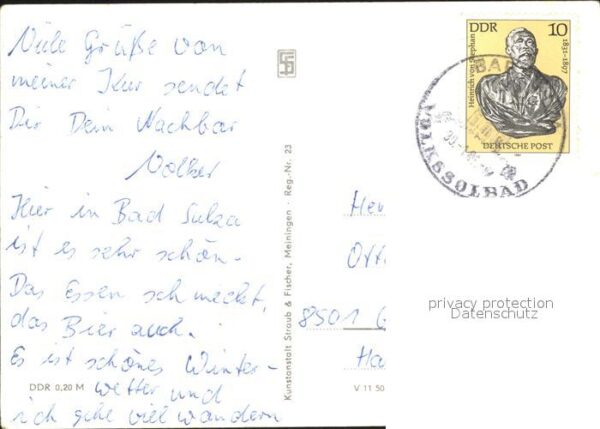 Viele Grüße von
meiner Kur sendet
Dir Dein Nachbar
Volker
Hier in Bad Sulza
ist es sehr schön.
Das Essen schmeckt,
das Bier auch.
Es ist schönes Winter-
wetter und
ich gehe viel wandern
DDR 0,20 M
Kunstanstalt Straub & Fischer, Meiningen · Reg.-Nr. 23
V 11 50
DDR 10
Heinrich von Stephan
1831-1897
DEUTSCHE POST
BAD
VOLKSSOLBAD
Her
Ott
8501
Ha
privacy protection
Datenschutz